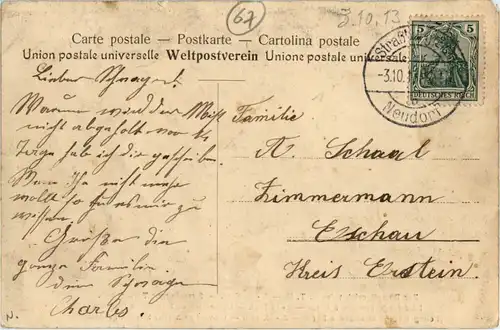 67
3.10.13
Carte postale – Postkarte – Cartolina postale
Union postale universelle Weltpostverein Unione postale universale
5
DEUTSCHES REICH
Straßb
-3.10.
Neudorf
Lieber Schwager!
Warum werd der Mist
nicht abgeholt vor
Tage hab ich die geschrieben.
Wan Ihr nicht mehr
wollt so tut es mir zu
wissen.
Grüße die
ganze Familie
dein Schwager
Charles.
Familie
A. Schaal
Zimmermann
Eschau
Kreis Erstein.
N.